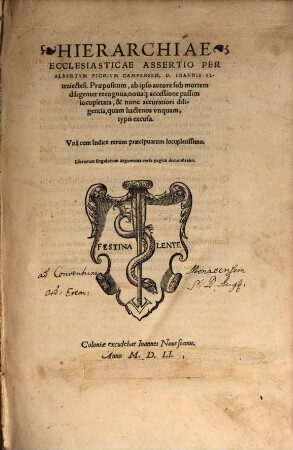 HIERARCHIAE
ECCLESIASTICAE ASSERTIO PER
ALBERTVM PIGHIVM CAMPENSEM, D. IOANNIS VL-
traiectens. Præpositum, ab ipso autore sub mortem
diligenter recognita, nouaq; accessione passim
locupletata, & nunc accuratiori dili-
gentia, quam hactenus vnquam,
typis excusa.
Vnà cum Indice rerum præcipuarum locupletissimo.
Librorum singulorum argumenta versa pagina demonstrabit.
FESTINA LENTE
ad Conventum Monacensem
Ord: Erem: S. P. Aug:
Coloniæ excudebat Ioannes Nouesianus,
Anno M. D. LI.